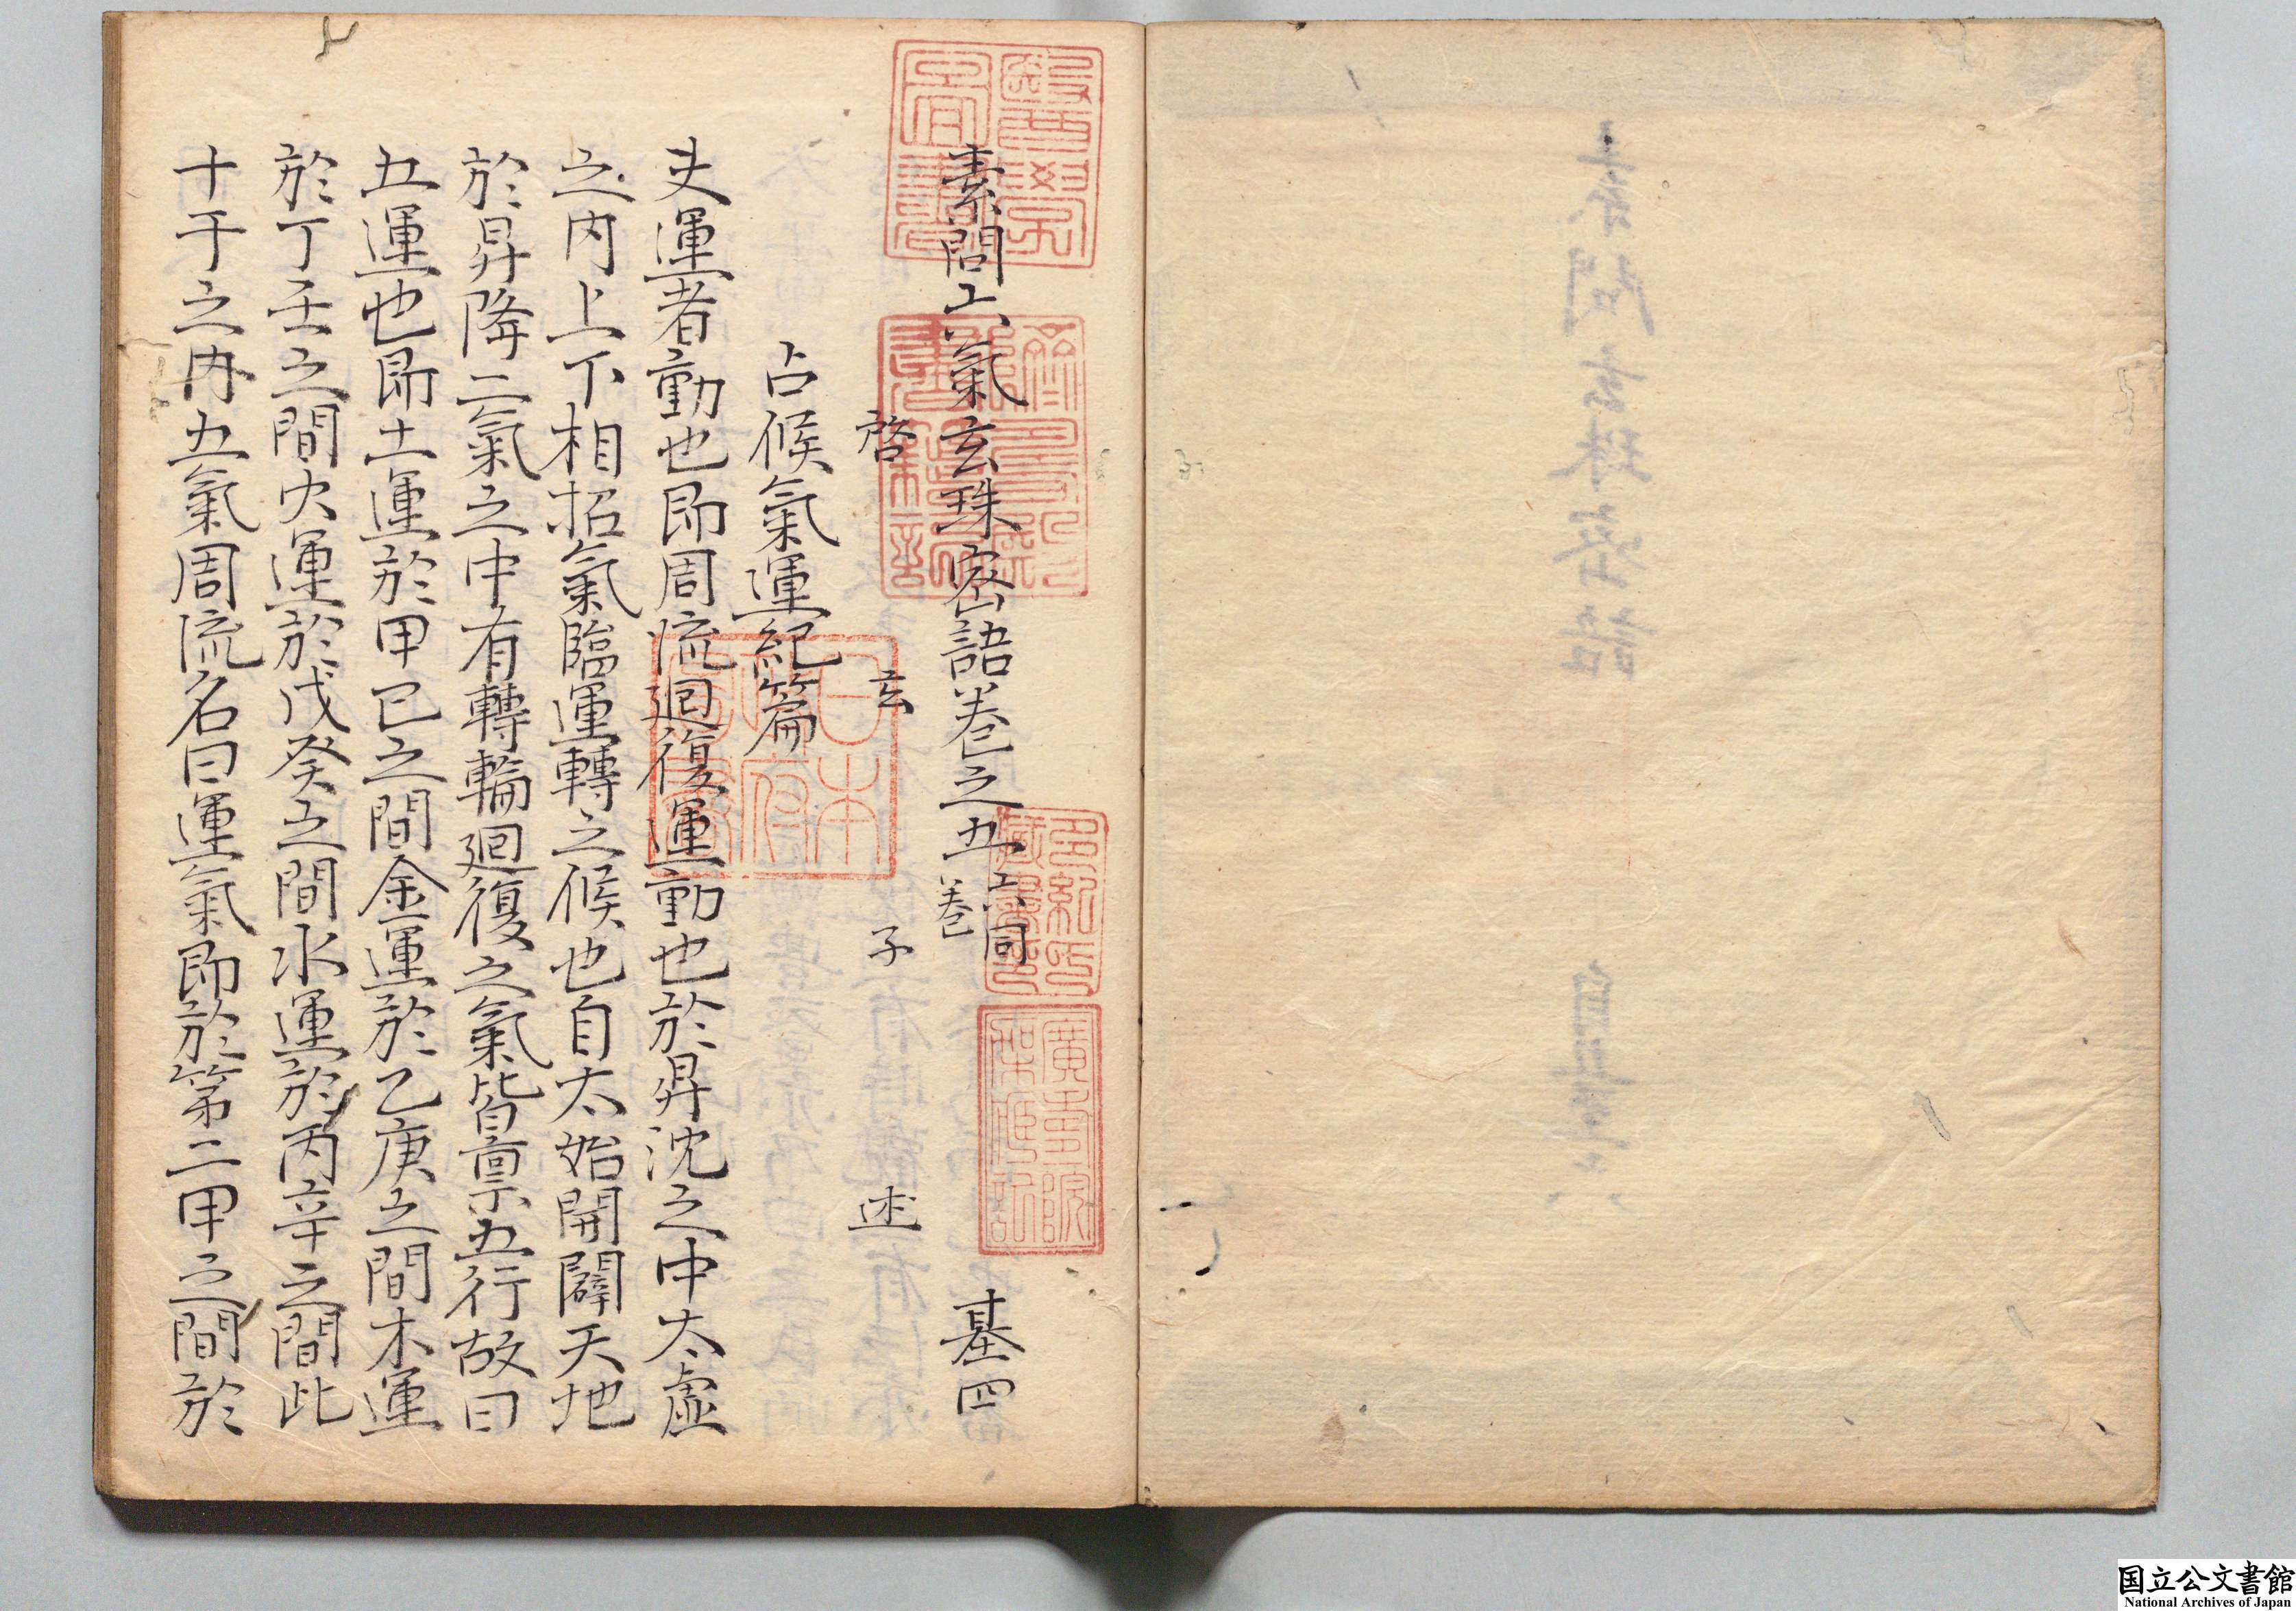 素問六氣玄珠密語卷之五 六同卷 基四
啓玄子述
占候氣運紀篇
夫運者動也即周流廻復運動也於昇沈之中太虛
之內上下相招氣臨運轉之候也自太始開闢天地
於昇降二氣之中有轉輪廻復之氣皆稟五行故曰
五運也即土運於甲己之間金運於乙庚之間木運
於丁壬之間火運於戊癸之間水運於丙辛之間此
十干之內五氣周流名曰運氣即於第二甲之間於
日本政府圖書
国立公文書館
National Archives of Japan